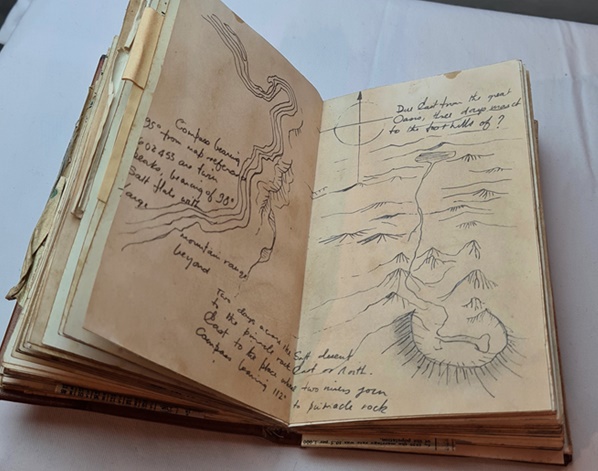 Compass bearing
95° from map reference
are twin
peaks, bearing of 90°
Salt flats with
large
mountain range
beyond
Two days across the
to the pinnacle rock
East to the place where
Compass bearing 112°
Due East from the great
Oasis, three days march
to the foothills of ?
Salt desert
East or North.
two rivers join
to pinnacle rock